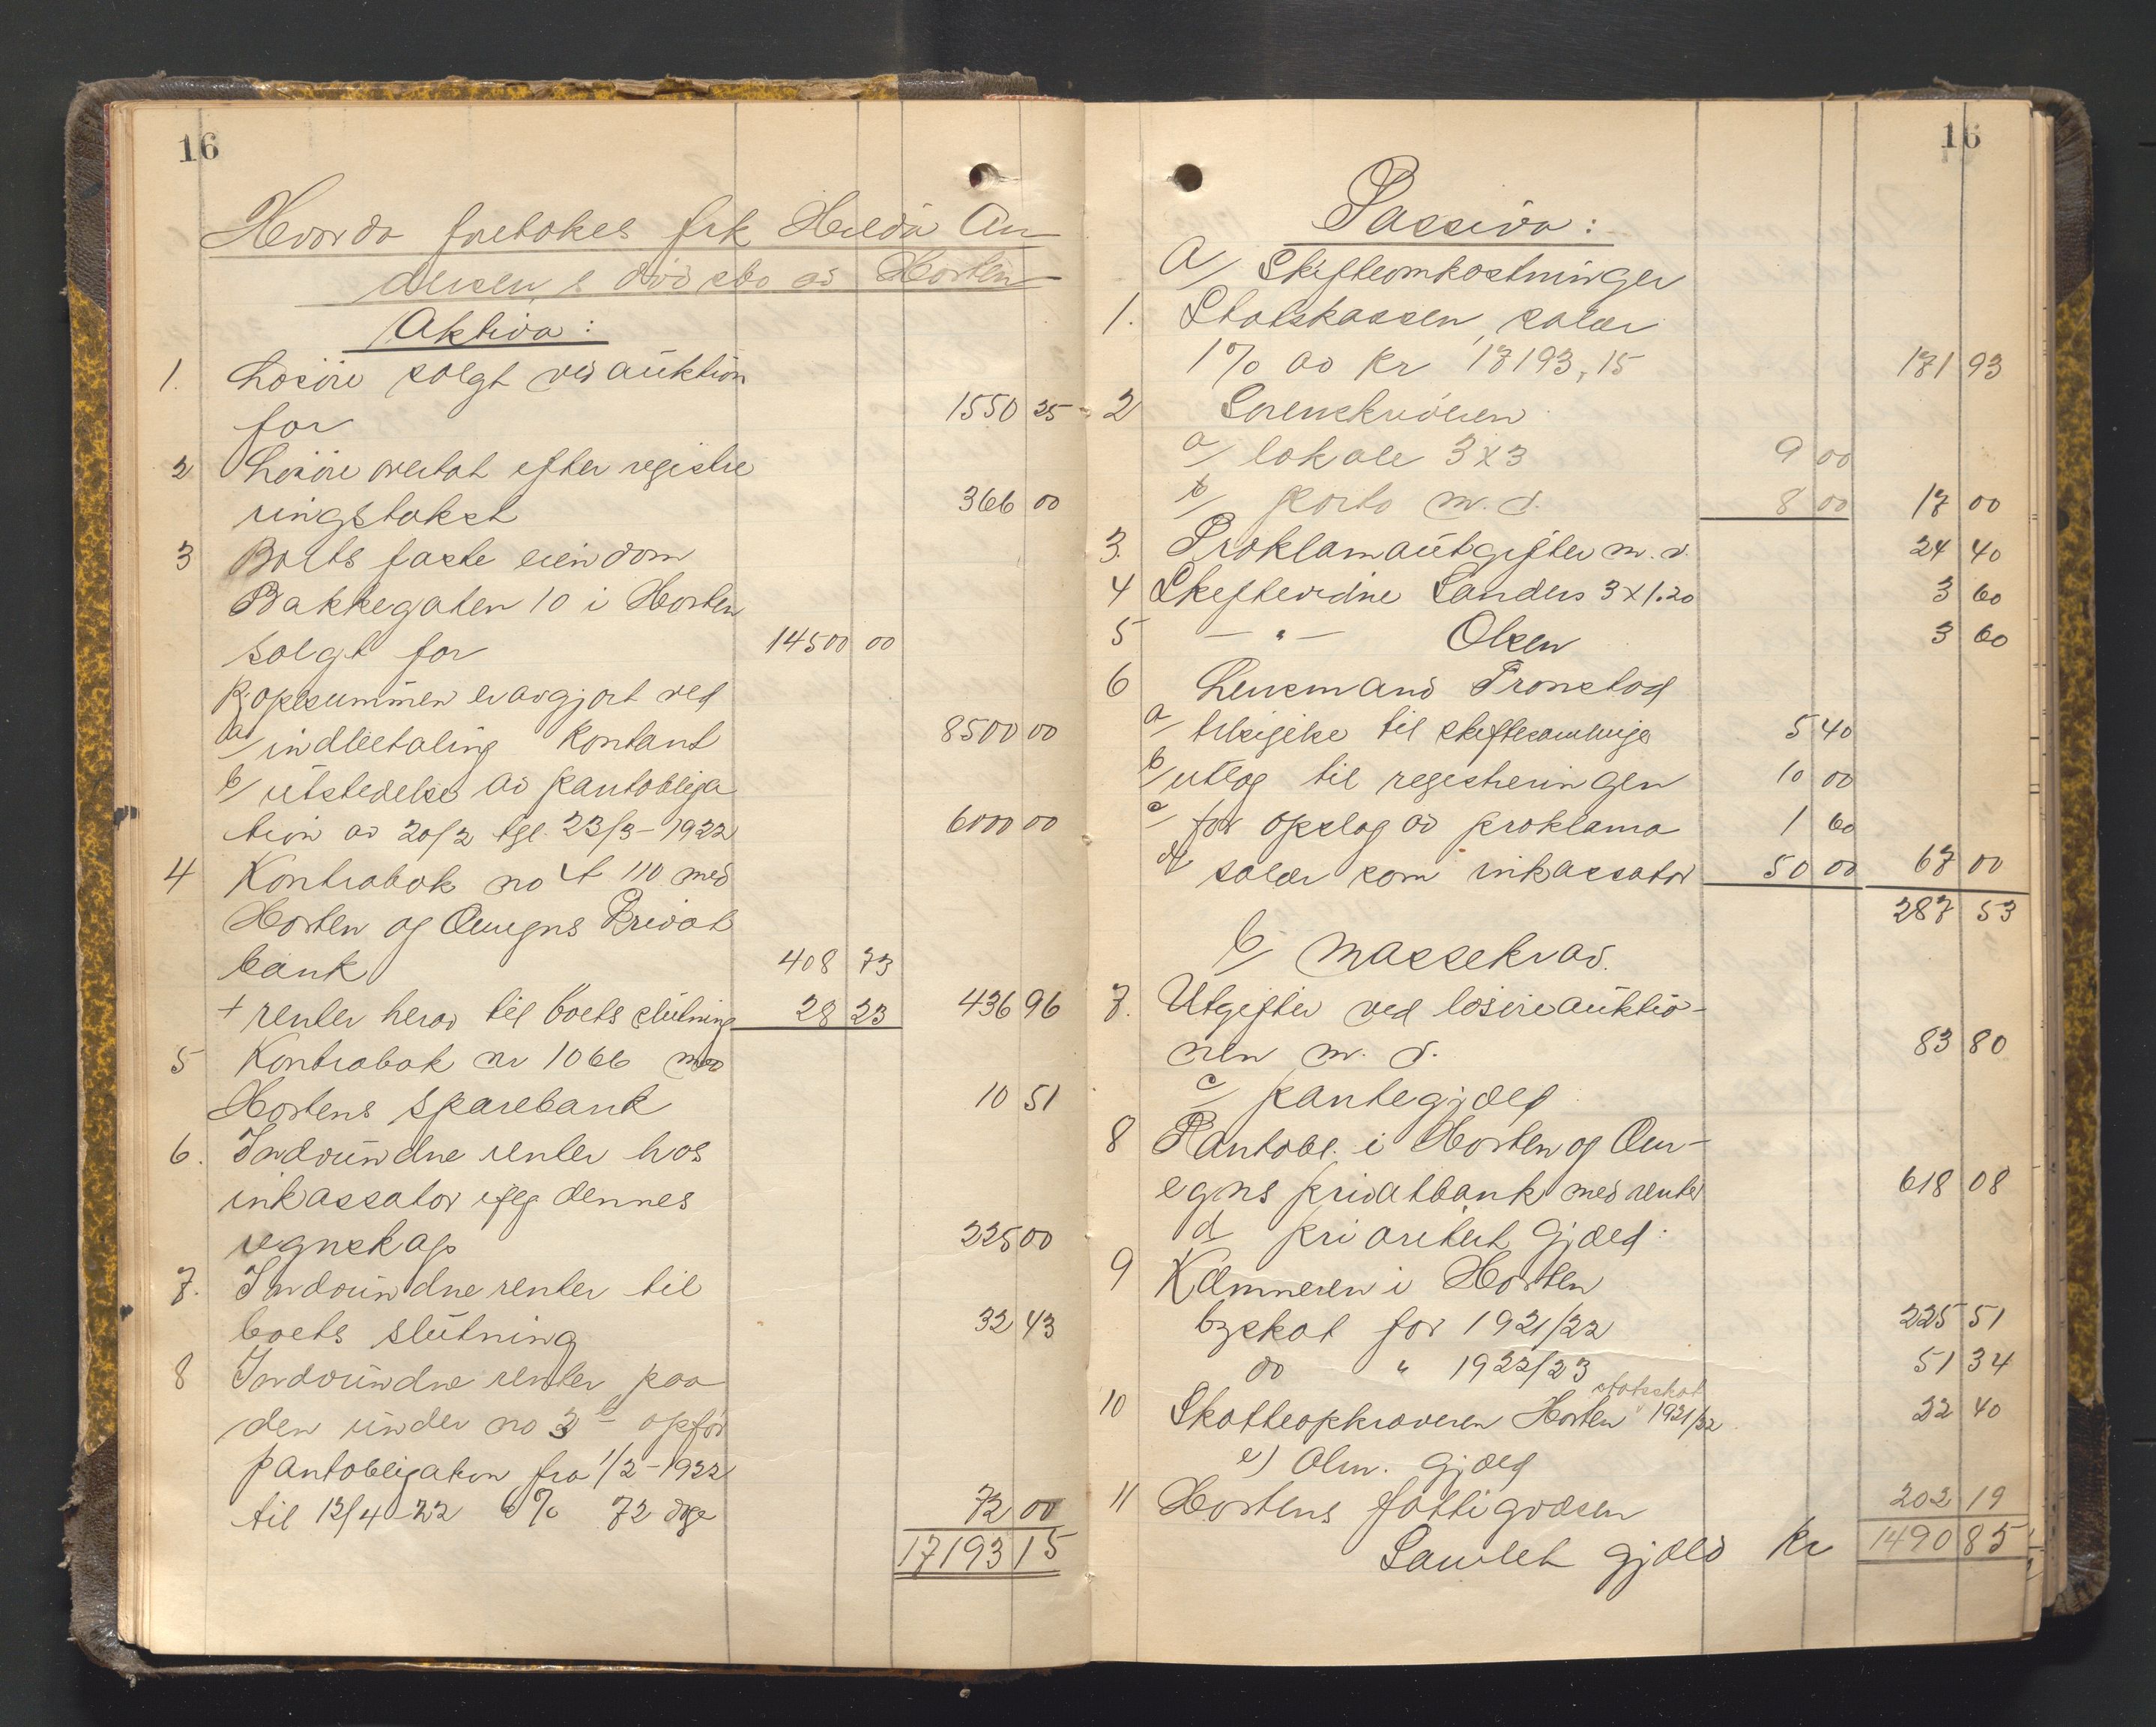 16
Hvorda foretokes frk Hilda An
dersen,s dødsbo av Horten
Aktiva:
1. Løsøre solgt ved auktion
for 1550 25
2 Løsøre overtat efter registre
ringstakst 366 00
3 Boets faste eiendom
Bakkegaten 10 i Horten
solgt for 14500 00
Kjøpesummen er avgjort ved
a/ indbetaling kontant 8500 00
b/ utstedelse av pantobliga
tion av 20/2 tgl. 23/3-1922 6000 00
4 Kontrabok no A 110 med
Horten og Omegns Privat
bank 408 73
+ renter herav til boets slutning 28 23 436 96
5 Kontrabok nr 1066 med
Hortens sparebank 10 51
6. Indvundne renter hos
inkassator ifølg dennes
regnskap 225 00
7. Indvundne renter til
boets slutning 32 43
8 Indvundne renter paa
den under no 3 b opfør
pantobligation fra 1/2-1922
til 12/4-22 6% 72 dge 72 00
17193 15
16
Passiva:
A/ Skifteomkostninger
1. Statskassen, salær
1% av kr 17193,15 171 93
2 Sorenskriveren
a/ lokale 3x3 9 00
b/ porto m.v. 8 00 17 00
3. Proklamautgifter m.v. 24 40
4 Skiftevidne Sanders 3x1.20 3 60
5 — " — Olsen 3 60
6 Lensmand Tronstad
a/ tilsigelse til skiftesamlinge 5 40
b/ utlæg til registreringen 10 00
c/ for opslag av proklama 1 60
d/ salær som inkassator 50 00 67 00
287 53
b/ Massekrav.
7. Utgifter ved løsøreauktio-
nen m.v. 83 80
c/ pantegjæld
8 Pantobl. i Horten og Om-
egns privatbank med renter 618 08
d prioritert gjæld:
9 Kæmneren i Horten
byskat for 1921/22 225 51
do " 1922/23 51 34
10 Skatteopkræveren Horten statsskat 1921/22 22 40
e) Alm. gjæld
11 Hortens fattigvæsen 202 19
Samlet gjæld kr 1490 85